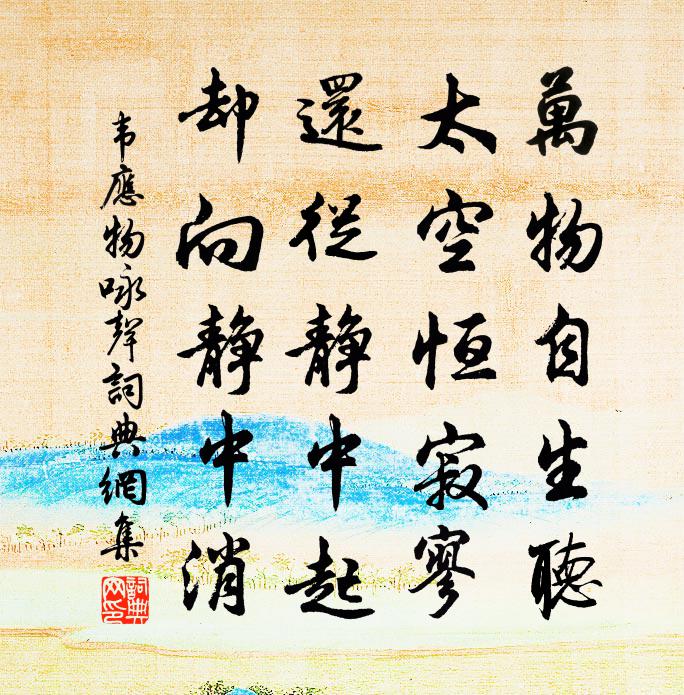 萬物自生聽
太空恒寂寥
還從静中起
却向静中消
韦應物咏聲詞典網集
詞典